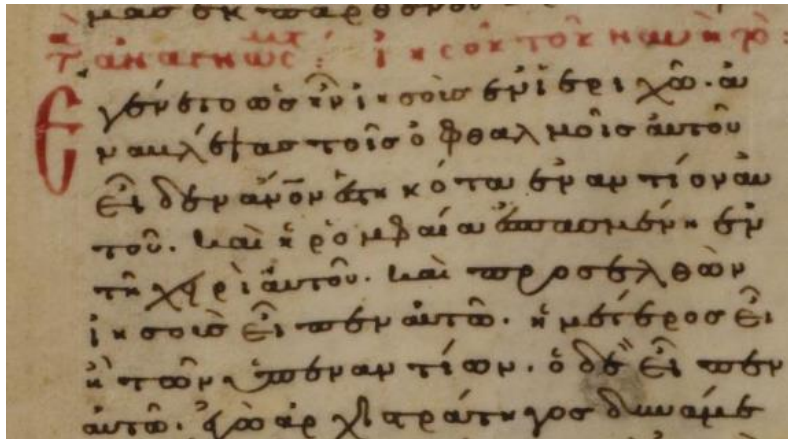 μας ἐκ παρθένου
ἰησοῦ τοῦ ναυὴ
Ἐγένετο ὡς ἦν ἰησοῦς ἐν ἱεριχῶ· ἀ
ναβλέψας τοῖς ὀφθαλμοῖς αὐτοῦ
εἶδεν ἄνον ἑστηκότα ἐναντίον αὐ
τοῦ. καὶ ἡ ῥομφαία ἐσπασμένη ἐν
τῆ χειρὶ αὐτοῦ. καὶ προσελθὼν
ἰησοῦς εἶπεν αὐτῶ. ἡμέτερος εἶ
ἢ τῶν ὑπεναντίων. ὁ δὲ εἶπεν
αὐτῶ. ἐγὼ ἀρχιστράτηγος δυνάμε